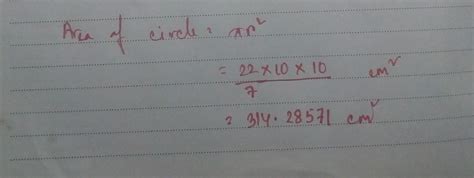 Area of circle = πr²
= 22 × 10 × 10 / 7 cm²
= 314.28571 cm²